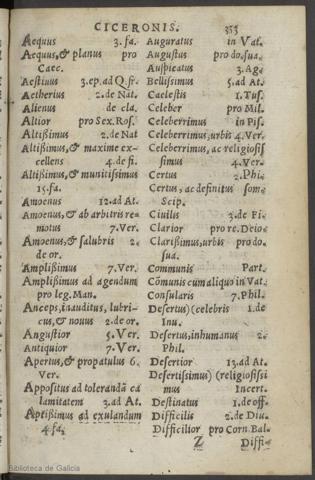 CICERONIS. 353
Aequus 3. fa.
Aequus, & planus pro
Caec.
Aestiuus 3. ep. ad Q. fr.
Aetherius 2. de Nat.
Alienus de cla.
Altior pro Sex. Ros.
Altißimus 2. de Nat
Altißimus, & maxime ex-
cellens 4. de fi.
Altißimus, & munitissimus
15. fa.
Amoenus 12. ad At.
Amoenus, & ab arbitris re-
motus 7. Ver.
Amoenus, & salubris 2.
de or.
Amplißimus 7. Ver.
Amplißimus ad agendum
pro leg. Man.
Anceps, inauditus, lubri-
cus, & nouus 2. de or.
Angustior 5. Ver.
Antiquior 7. Ver.
Apertus, & propatulus 6.
Ver.
Appositus ad tolerandā ca
lamitatem 3. ad At.
Aptißimus ad exulandum
4. fa.
Auguratus in Vat.
Augustus pro do. sua.
Auspicatus 3. Ag.
Bellissimus 5. ad At.
Caelestis 1. Tus.
Celeber pro Mil.
Celeberrimus in Pis.
Celeberrimus, urbis 4. Ver.
Celeberrimus, ac religiosis
simus 4. Ver.
Certus 2. Phi.
Certus, ac definitus som.
Scip.
Ciuilis 3. de Fi.
Clarior pro re. Deio.
Clarißimus, urbis pro do.
sua.
Communis Part.
Cōmunis cum aliquo in Vat.
Consularis 7. Phil.
Desertus) celebris 1. de
Inu.
Desertus, inhumanus 2.
Phil.
Desertior 13. ad At.
Desertissimus) religiosissi
mus Incert.
Destinatus 1. de off.
Difficilis 2. de Diu.
Difficilior pro Corn. Bal.
Z Diffi-
Biblioteca de Galicia